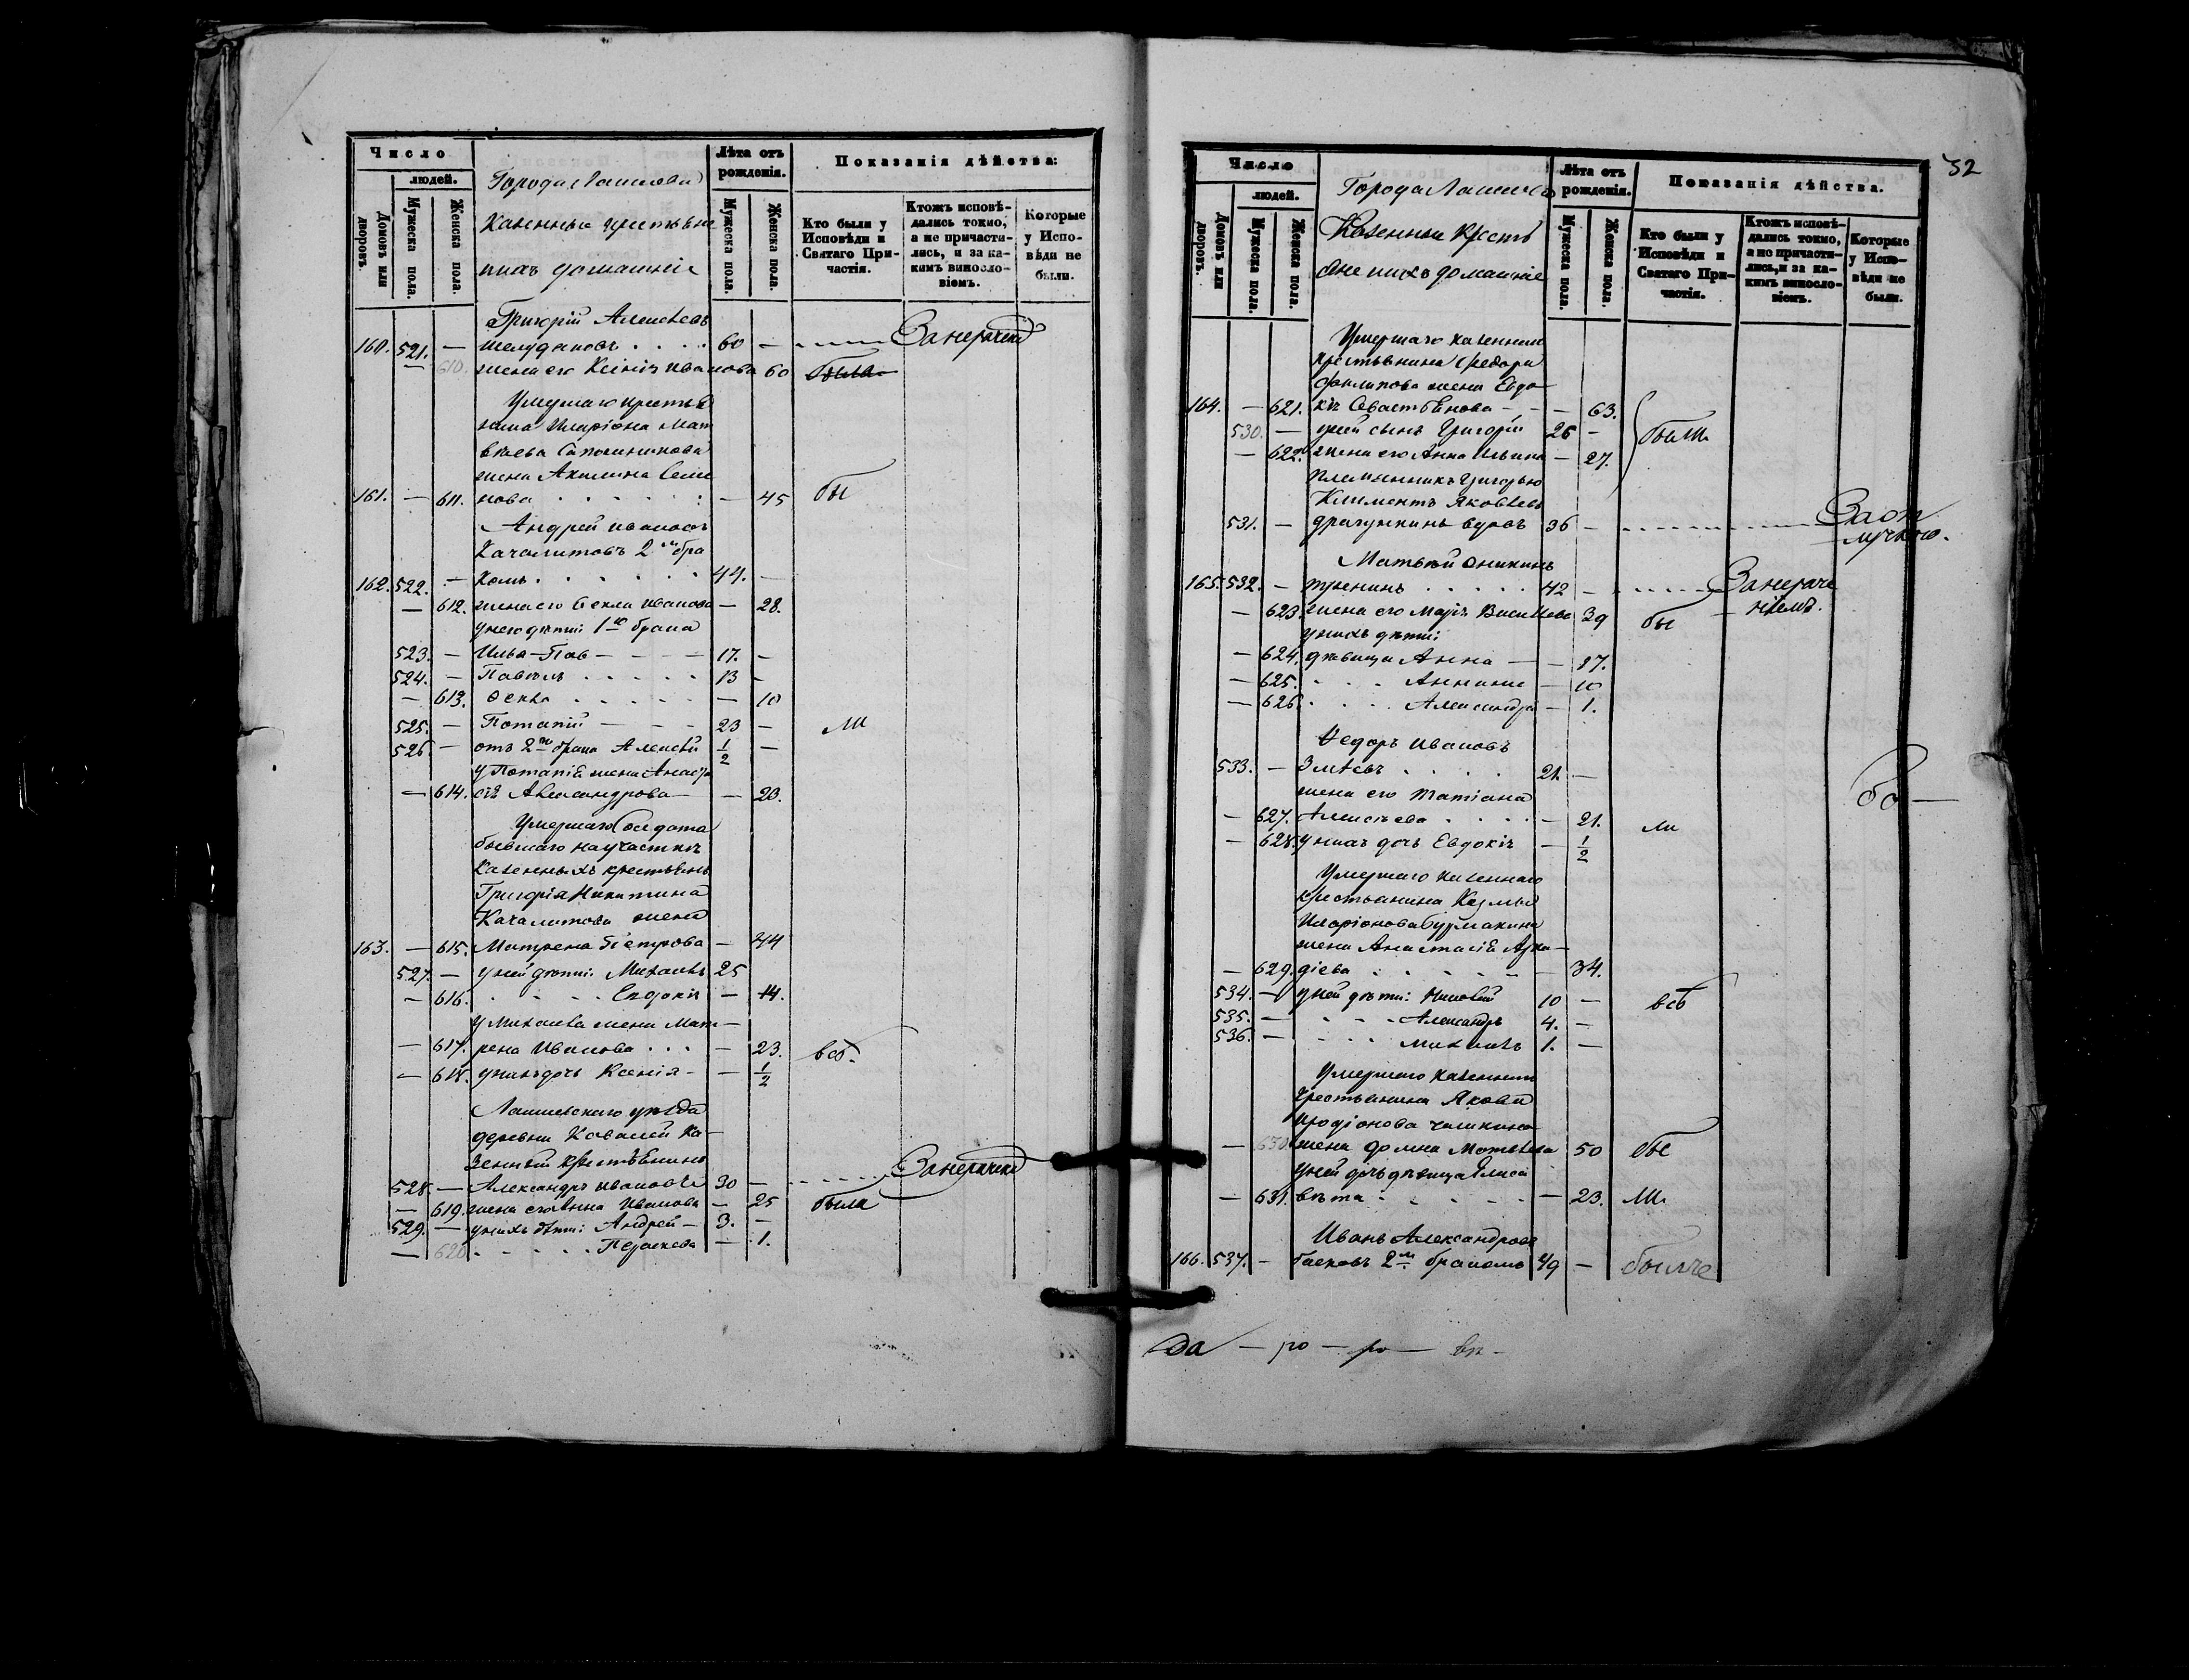 Число
людей.
Домовъ или дворовъ.
Мужеска пола.
Женска пола.
Города Лаишева
Казенные крестьяне
и ихъ домашніе
Лѣта отъ рожденія.
Мужеска пола.
Женска пола.
Показанія дѣйства:
Кто были у Исповѣди и Святаго Причастія.
Ктожъ исповѣдались токмо, а не причастились, и за какимъ винословіемъ.
Которые у Исповѣди не были.
Григорій Алексѣевъ
160. 521. — 60 —
— 610. жена его Ксенія Иванова 60 была
Умершаго крестья
нина Иларіона Мат
вѣева Сапожникова
жена Акилина Семе
161. — 611. нова — 45 бы
Андрей Ивановъ
Качалитовъ 2мъ бра
162. 522. — комъ 44. —
— 612. жена его Фекла Иванова — 28.
у него дѣти: 1го брака
523. — Илья 17. —
524. — Павелъ 13 —
— 613. Фекла — 10
525. — Потапій 23 — ли
526 — отъ 2го брака Алексѣй 1/2 —
у Потапія жена Анаста
— 614. сія Александрова — 23.
Умершаго Солдата
бывшаго на участкѣ
казенныхъ крестьянъ
Григорія Никитина
Качалитова жена
163. — 615. Матрена Петрова — 44
527. — у ней дѣти: Михаилъ 25
— 616. Евдокія — 14.
у Михаила жена Мат—
— 617. рена Иванова — 23. всѣ.
— 618. у нихъ дочь Ксенія — 1/2
Лаишевскаго уѣзда
деревни Ковалей Ка—
зенный крестьянинъ
528. — Александръ Ивановъ 30 —
— 619. жена его Анна Иванова — 25 была
529. — у нихъ дѣти: Андрей — 3. —
— 620. Параскева — 1.
52
Число
людей.
Домовъ или дворовъ.
Мужеска пола.
Женска пола.
Города Лаишева
Казенные Кресть
яне и ихъ домашніе
Лѣта отъ рожденія.
Мужеска пола.
Женска пола.
Показанія дѣйства.
Кто были у Исповѣди и Святаго Причастія.
Ктожъ исповѣдались токмо, а не причастились, и за какимъ винословіемъ.
Которые у Исповѣди не были.
Умершаго казеннаго
крестьянина Федора
Филипова жена Евдо
164. — 621. кія Севастьянова — 63.
530. — у ней сынъ Григорій 26 — были
— 622. жена его Анна Ильина — 27.
племянникъ Григорью
Климентъ Яковлевъ
531. — драгункинъ вдовъ 36 — За от
лучкою.
Матвѣй Оникинъ
165. 532. — тренинъ 42 — За нераче
— 623. жена его Марія Василева 39 бы ніемъ.
у нихъ дѣти:
— 624. дѣвица Анна — 17.
— 625. — 10
— 626. Александра — 1.
Ѳедоръ Ивановъ
533. — Змѣевъ 21. —
жена его Татіана
— 627. Алексѣева — 21. ли
— 628. у нихъ дочь Евдокія — 1/2
Умершаго казеннаго
крестьянина Козьмы
Иларіонова Бурмакина
жена Анастасія Арка—
— 629. діева — 34.
534. — у ней дѣти: 10 — всѣ
535. — Александръ 4. —
536. — Михаилъ 1. —
Умершаго казеннаго
крестьянина Якова
Иродіонова
— 630. жена Домна Матвѣева 50 бы
у ней дочь дѣвица Елиса
— 631. вета — 23. ли
Иванъ Александровъ
166. 537. — 2мъ бракомъ 49 —
да — ро — ро —